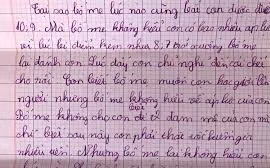 Tại sao bố mẹ lúc nào cũng bắt con được điểm
10, 9. Mà bố mẹ không hiểu con có bao nhiêu áp lực
với lúc lại điểm kém như 8, 7 trở xuống bố mẹ
lại đánh con. Lúc đấy con chỉ nghĩ đến cái chết
cho rồi. Con biết bố mẹ muốn con học giỏi bằng
người nhưng bố mẹ không hiểu về áp lực của con
Bố mẹ không cho con đi đam mê của con mà
chỉ sau này con phải
nhiều tiền. Nhưng bố mẹ lại không hiểu con